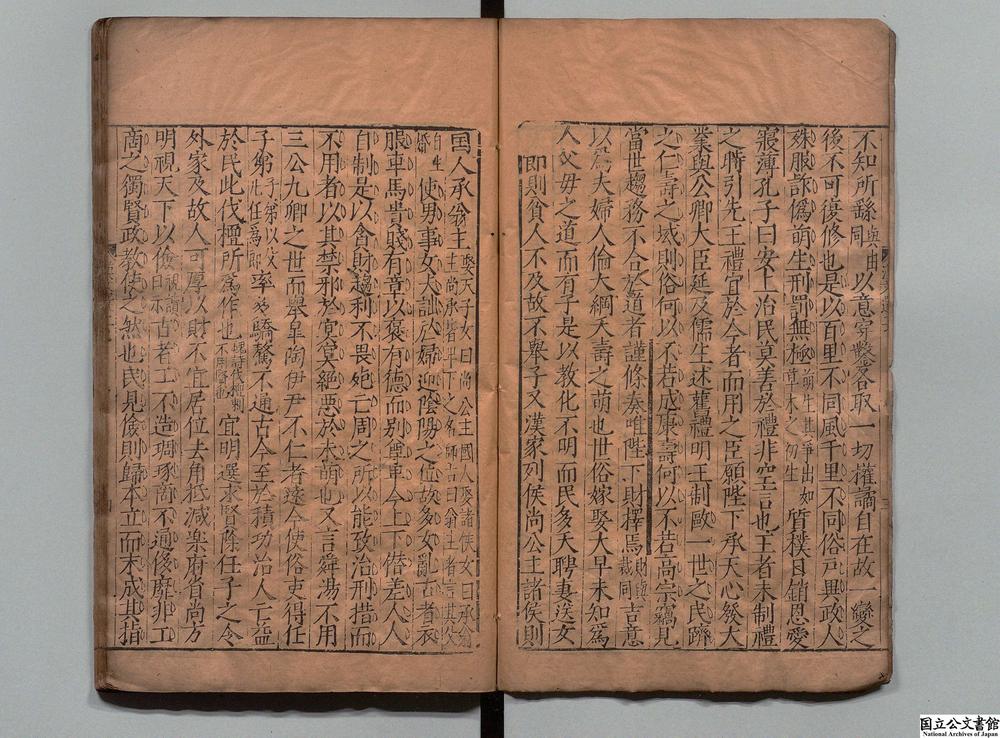 不知所繇與由同以意穿鑿各取一切權譎自在故一變之
後不可復修也是以百里不同風千里不同俗戸異政人
殊服詐僞萌生刑罰無極萌生其爭出如草木之初生質樸日銷恩愛
寖薄孔子曰安上治民莫善於禮非空言也王者未制禮
之時引先王禮宜於今者而用之臣願陛下承天心發大
業與公卿大臣延及儒生述舊禮明王制歐一世之民躋
之仁壽之域則俗何以不若成康壽何以不若高宗竊見
當世趨務不合於道者謹條奏唯陛下財擇焉財與裁同吉意
以爲夫婦人倫大綱夭壽之萌也世俗嫁娶大早未知爲
人父毋之道而有子是以教化不明而民多夭聘妻送女
即則貧人不及故不舉子又漢家列侯尚公主諸侯則
国人承翁主娶天子女曰尚公主國人娶諸侯女曰承翁主尚承皆卑下之名師古曰翁主者言其父
自主婚使男事女夫詘於婦逆陰陽之位故多女亂古者衣
服車馬貴賤有章以褒有德而别尊卑今上下僭差人人
自制是以貪財趨利不畏死亡周之所以能致治刑措而
不用者以其禁邪於冥冥絶惡於未萌也又言舜湯不用
三公九卿之世而舉皐陶伊尹不仁者遠今使俗吏得任
子弟子弟以父兄任爲郎率多驕驁不通古今至於積功治人亡益
於民此伐檀所爲作也魏詩伐檀刺不用賢也宜明選求賢除任子之令
外家及故人可厚以財不宜居位去角抵减楽府省尚方
明視天下以儉視讀曰示古者工不造琱琢商不通侈靡非工
商之獨賢政教使之然也民見儉則歸本立而末成其指
国立公文書館
National Archives of Japan